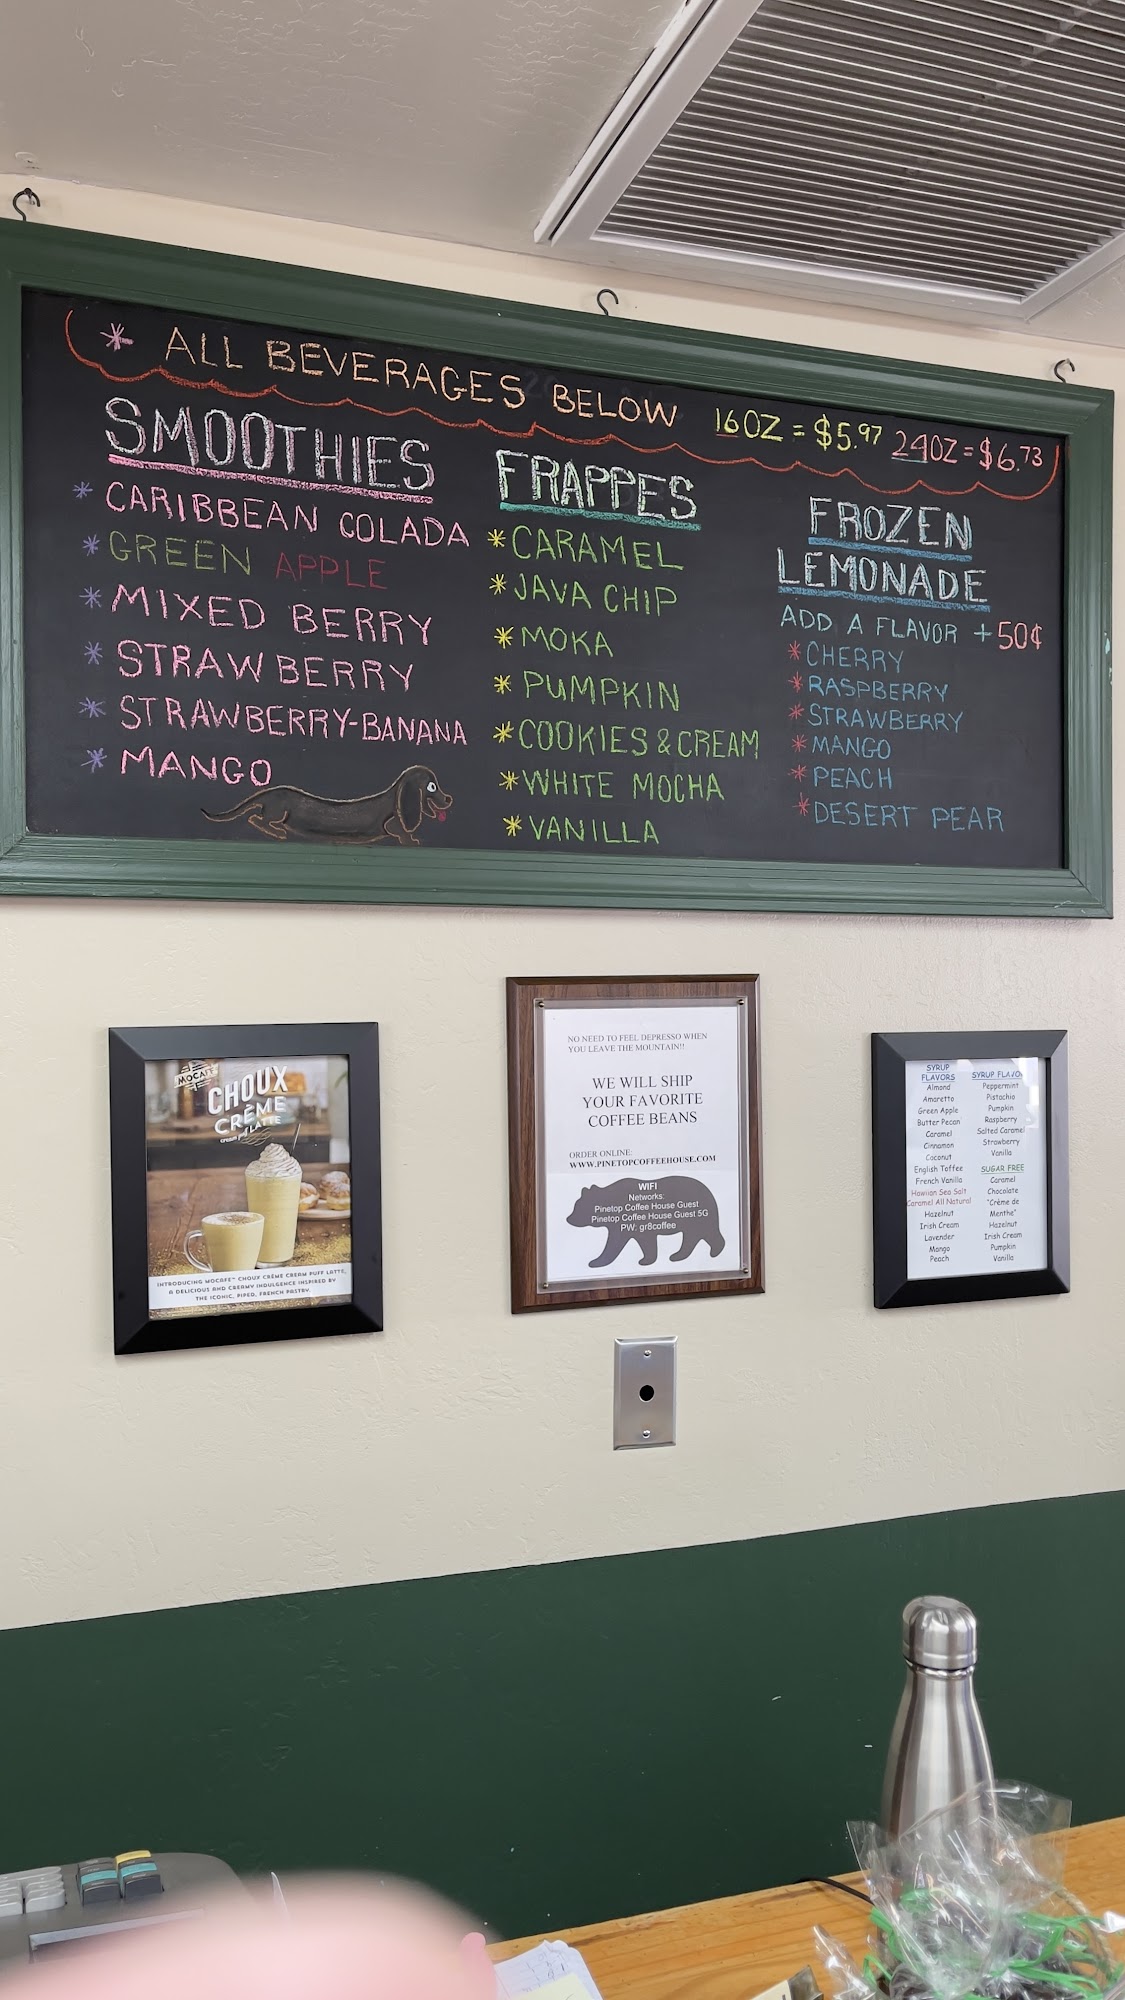 * ALL BEVERAGES BELOW 16OZ = $5.97 24OZ = $6.73
SMOOTHIES
* CARIBBEAN COLADA
* GREEN APPLE
* MIXED BERRY
* STRAWBERRY
* STRAWBERRY-BANANA
* MANGO
FRAPPES
* CARAMEL
* JAVA CHIP
* MOKA
* PUMPKIN
* COOKIES & CREAM
* WHITE MOCHA
* VANILLA
FROZEN
LEMONADE
ADD A FLAVOR +50¢
* CHERRY
* RASPBERRY
* STRAWBERRY
* MANGO
* PEACH
* DESERT PEAR
MOCAFE
CHOUX
CRÈME
cream puff LATTE
INTRODUCING MOCAFE™ CHOUX CRÈME CREAM PUFF LATTE,
A DELICIOUS AND CREAMY INDULGENCE INSPIRED BY
THE ICONIC, PIPED, FRENCH PASTRY.
NO NEED TO FEEL DEPRESSO WHEN
YOU LEAVE THE MOUNTAIN!!
WE WILL SHIP
YOUR FAVORITE
COFFEE BEANS
ORDER ONLINE:
WWW.PINETOPCOFFEEHOUSE.COM
WIFI
Networks:
Pinetop Coffee House Guest
Pinetop Coffee House Guest 5G
PW: gr8coffee
SYRUP
FLAVORS
Almond
Amaretto
Green Apple
Butter Pecan
Caramel
Cinnamon
Coconut
English Toffee
French Vanilla
Hawiian Sea Salt
Caramel All Natural
Hazelnut
Irish Cream
Lavender
Mango
Peach
SYRUP FLAVOR
Peppermint
Pistachio
Pumpkin
Raspberry
Salted Caramel
Strawberry
Vanilla
SUGAR FREE
Caramel
Chocolate
"Crème de
Menthe"
Hazelnut
Irish Cream
Pumpkin
Vanilla